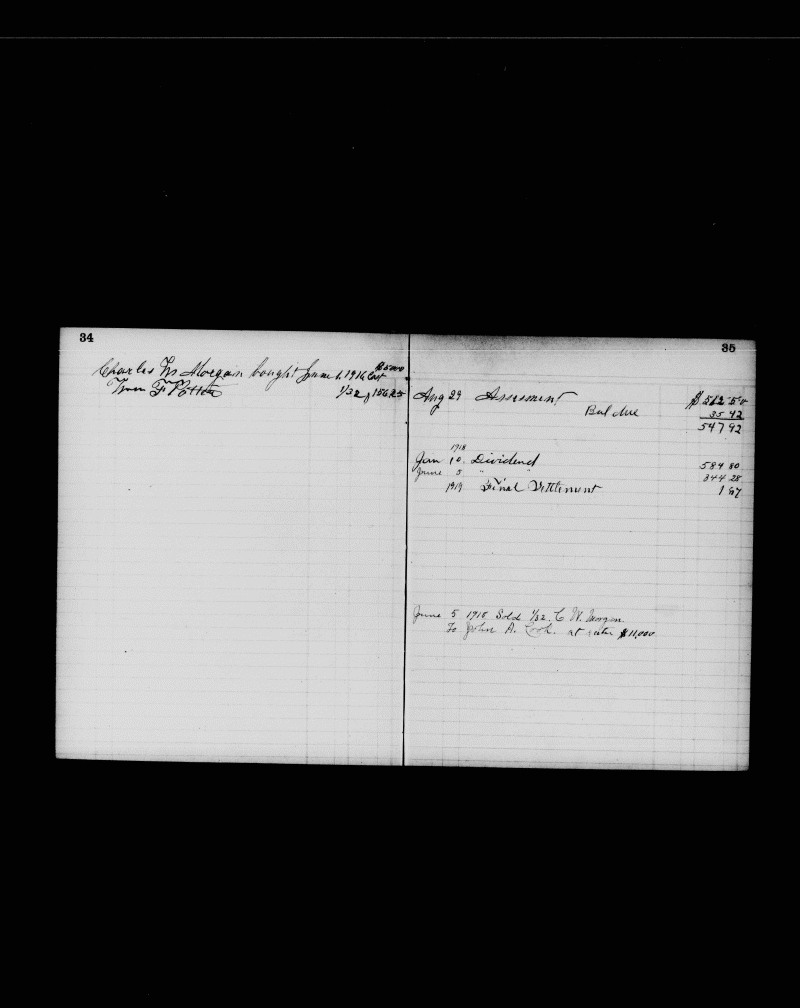 34
Charles W Morgan bought June 1, 1916 Cost $5000
from F Potter 1/32 156.25
35
Aug 29 Assessment $ 512 50
Bal due 35 42
547 92
1918
Jan 10 Dividend 584 80
June 5 " " 344 28
1919 Final Settlement 1 67
June 5 1918 Sold 1/32 C W. Morgan
To John A. Cook. at rate $11,000